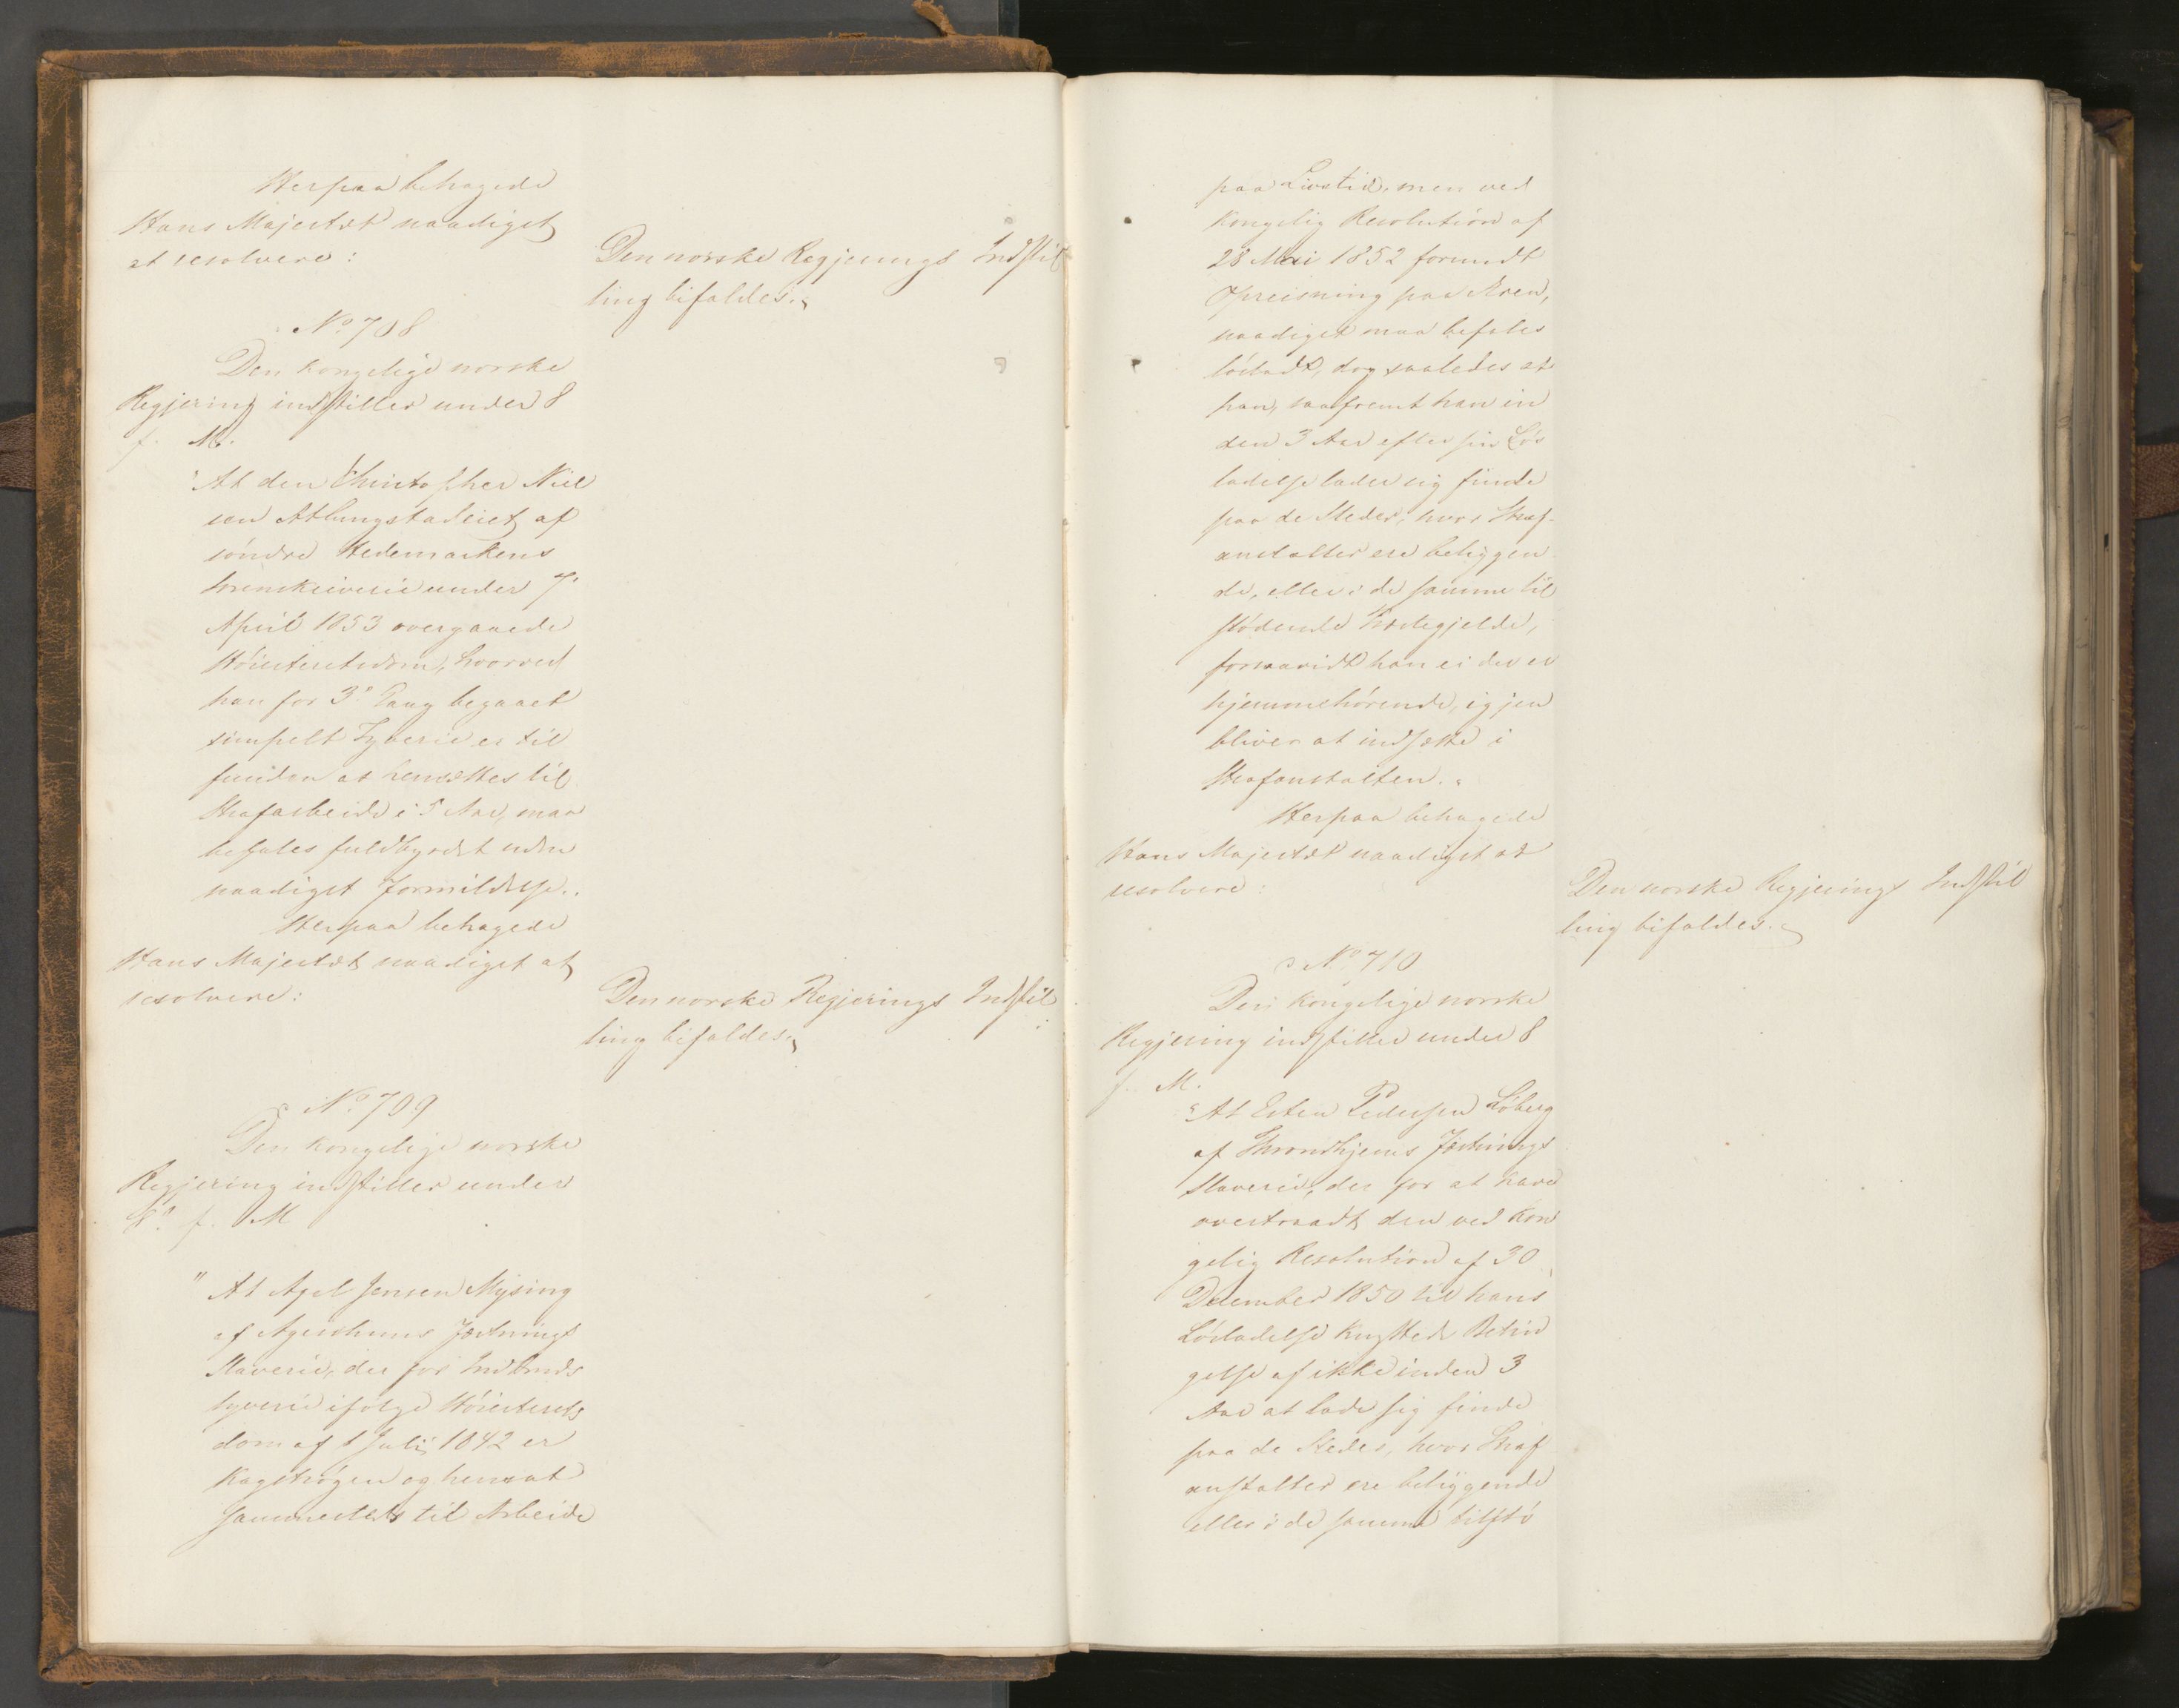 Herpaa behagede
Hans Majestæt naadigst
at resolvere:
Den norske Regjerings Indstil
ling bifaldes.
No 708
Den kongelige norske
Regjering indstiller under 8
f. M.
"At den Christopher Niel
sen Atlungstadeiet af
søndre Hedemarkens
Sorenskriverie under 7'
April 1853 overgaaede
Høiesteretsdom, hvorved
han for 3' Gang begaaet
simpelt Tyverie er til
funden at hensættes til
Strafarbeide i 5 Aar, maa
befales fuldbyrdet uden
naadigst Formildelse.
Herpaa behagede
Hans Majestæt naadigst at
resolvere:
Den norske Regjerings Indstil
ling bifaldes.
No 709
Den kongelige norske
Regjering indstiller under
8' f. M
"At Axel Jensen Mysing
af Agershuus Fæstnings
Slaverie, der for Indbruds
tyverie ifølge Høiesterets
dom af 1 Juli 1842 er
kagstrøgen og hensat
sammesteds til Arbeide
paa Livstid, men ved
kongelig Resolution af
28 Mai 1852 forundt
Opreisning paa Æren,
naadigst maa befales
løsladt, dog saaledes at
han, saafremt han in
den 3 Aar efter sin Løs
ladelse lader sig finde
paa de Steder, hvor Straf-
anstalter ere beliggen
de, eller i de samme til
stødende Præstegjelde,
forsaavidt han ei der er
hjemmehørende, igjen
bliver at indsætte i
Strafanstalten."
Herpaa behagede
Hans Majestæt naadigst at
resolvere:
Den norske Regjerings Indstil
ling bifaldes.
No 710
Den kongelige norske
Regjering indstiller under 8
f. M.
"At Esten Pedersen Løberg
af Throndhjems Fæstnings
Slaverie, der for at have
overtraadt den ved kon
gelig Resolution af 30
December 1850 til hans
Løsladelse knyttede Betin
gelse af ikke inden 3
Aar at lade sig finde
paa de Steder, hvor Straf
anstalter ere beliggende
eller i de samme tilstø